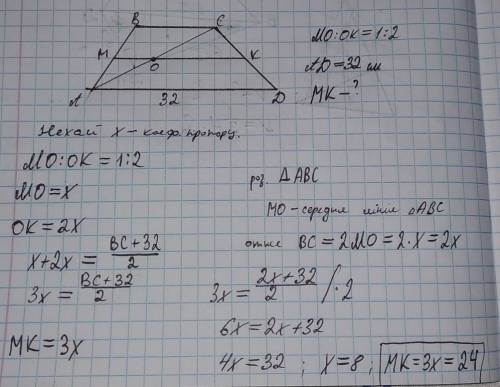 B C
MO:OK=1:2
M O K
AD=32 см
A 32 D
MK-?
Нехай x - коеф. пропорц.
MO:OK=1:2
роз. ΔABC
MO=x
MO - середня лінія ΔABC
OK=2x
отже BC=2MO=2·x=2x
x+2x=(BC+32)/2
3x=(BC+32)/2
3x=(2x+32)/2 /·2
6x=2x+32
MK=3x
4x=32 ; x=8 ; MK=3x=24